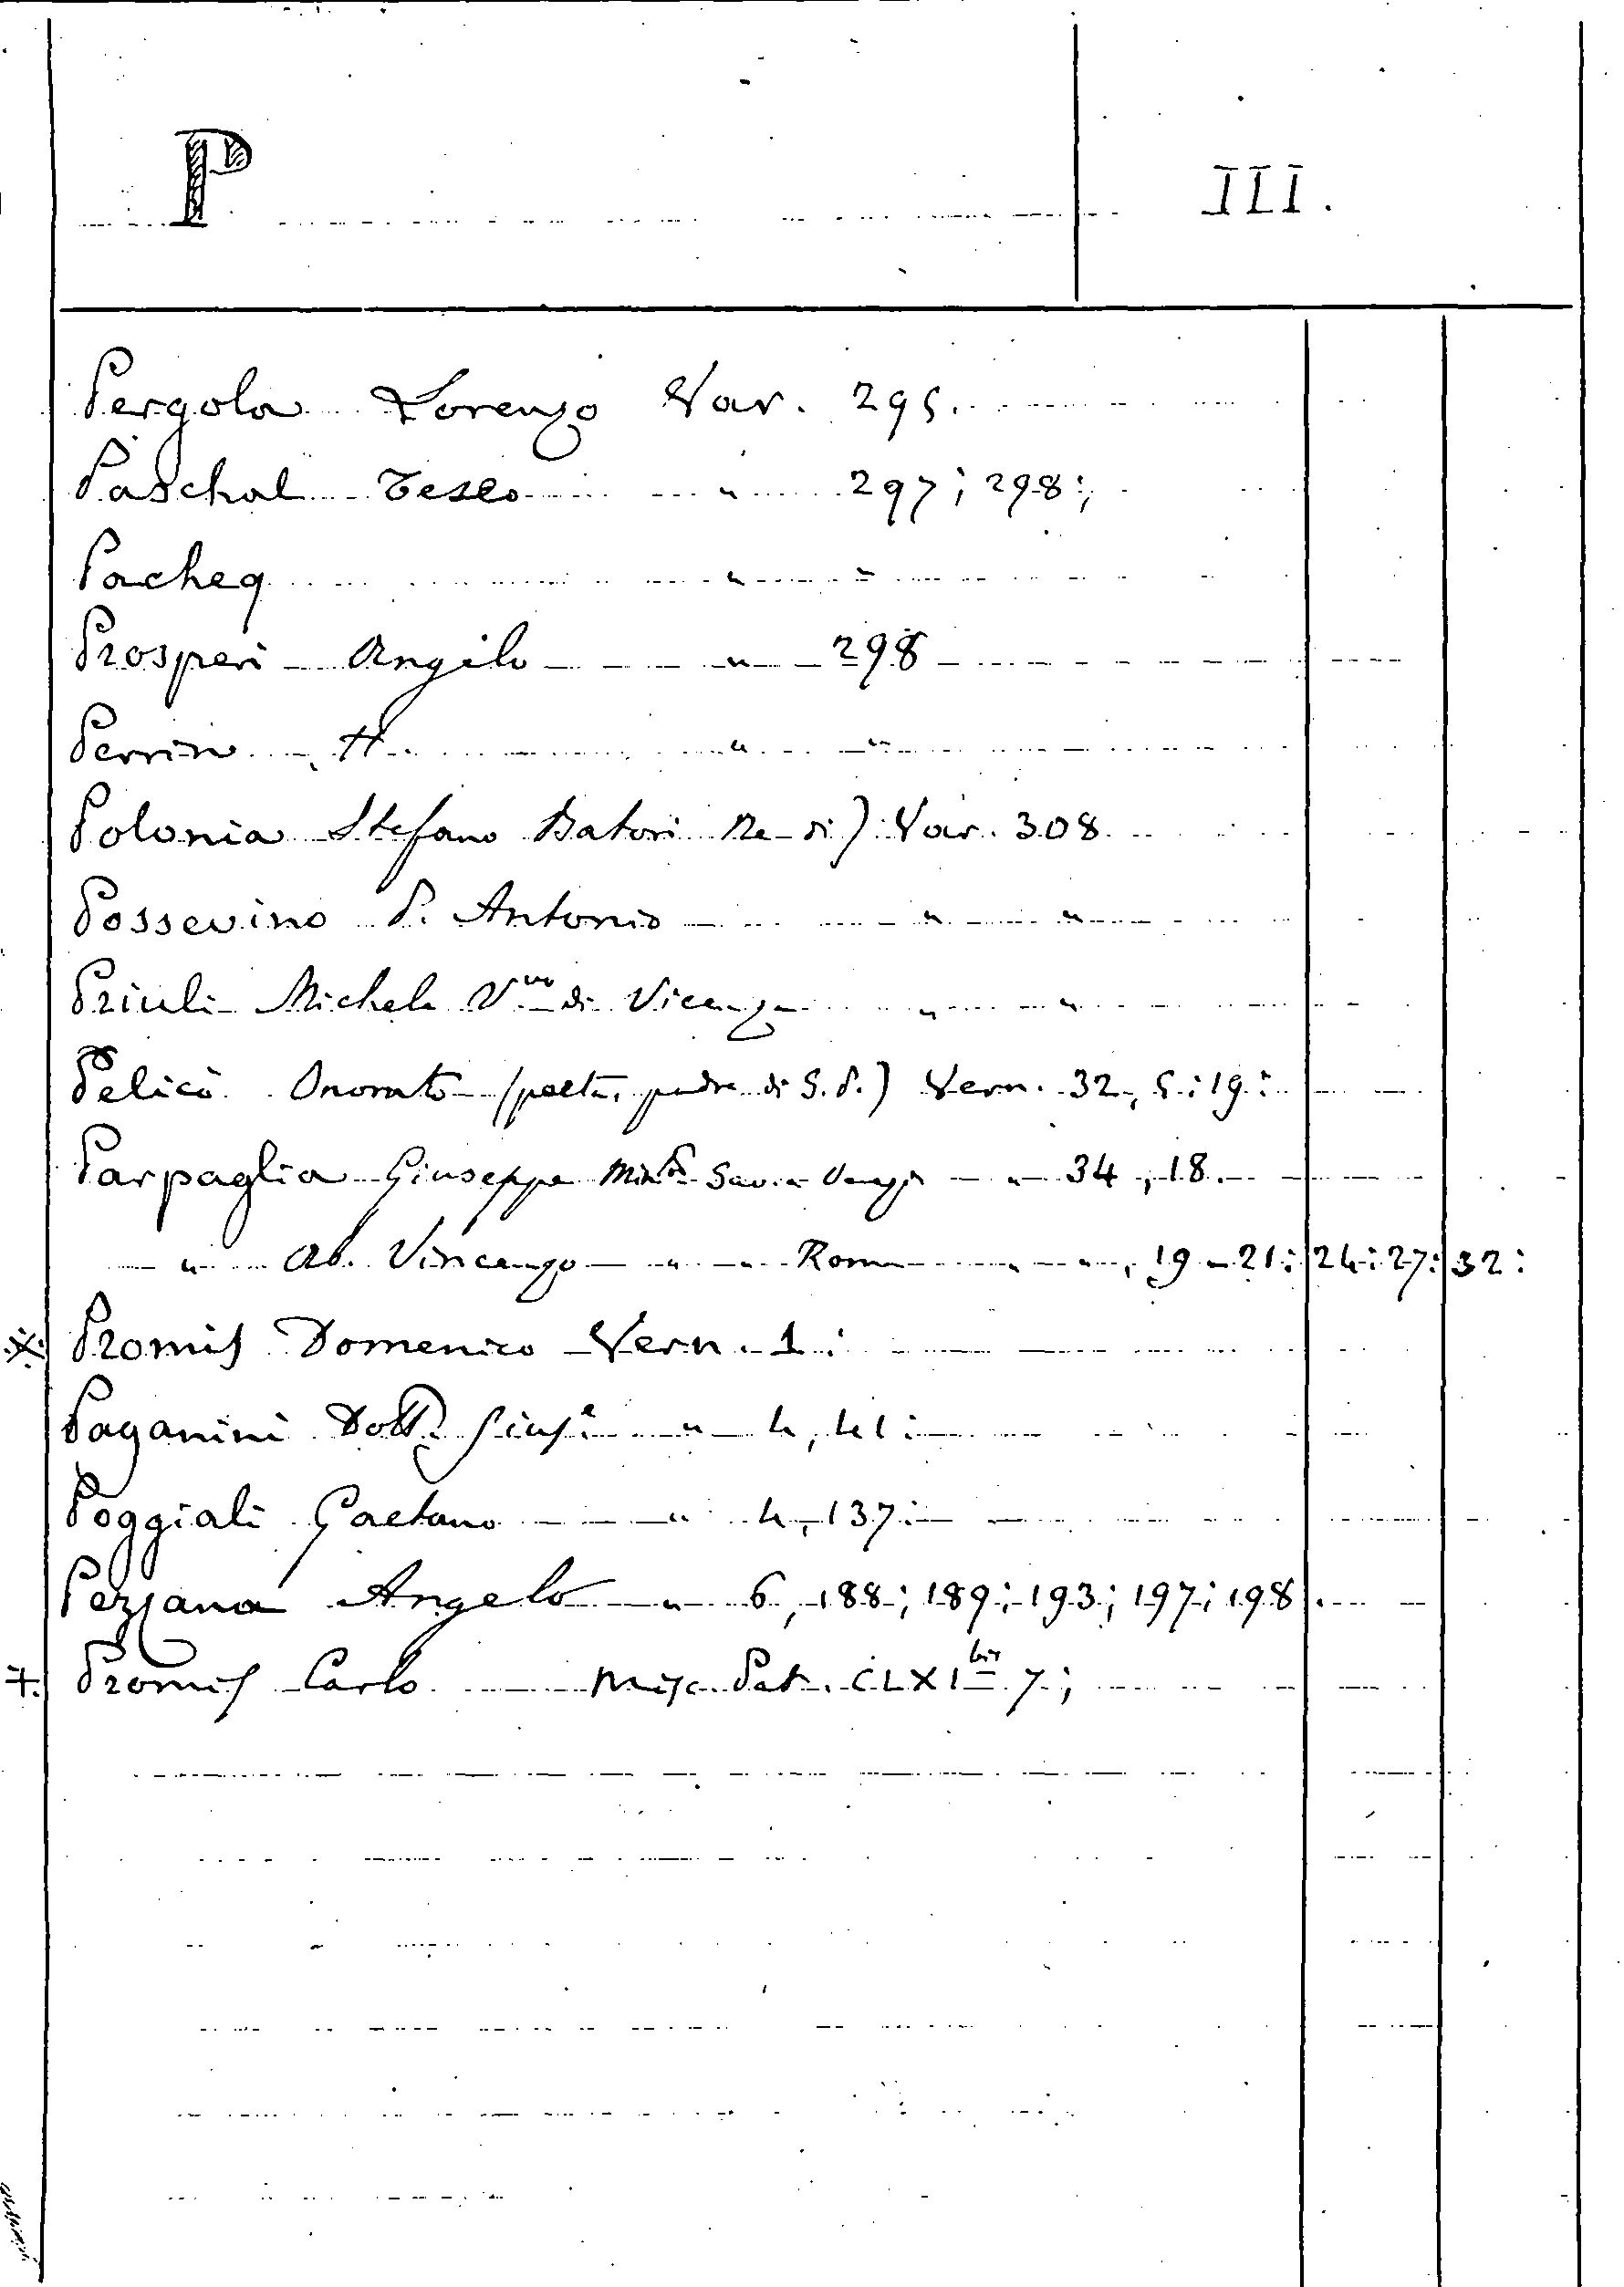 P III.
Pergola Lorenzo Var. 295.
Paschal Teseo " 297; 298;
Pacheq " "
Prosperi Angelo " 298
Perrin H. " "
Polonia Stefano Batori Re di) Var. 308
Possevino P. Antonio " "
Priuli Michele Vvo di Vicenza " "
Pelico Onorato (poeta, padre di S. P.) Vern. 32, 5: 19:
Parpaglia Giuseppe Savoia " 34, 18.
" Ab. Vincenzo " " Roma " ", 19-21: 24: 27: 32:
Promis Domenico Vern. 1:
Paganini Dott. Giuse " 4, 41:
Poggiali Gaetano " 4, 137:
Pezzana Angelo " 6, 188; 189; 193; 197; 198.
Promis Carlo Misc. Pat. CLXI bis 7;